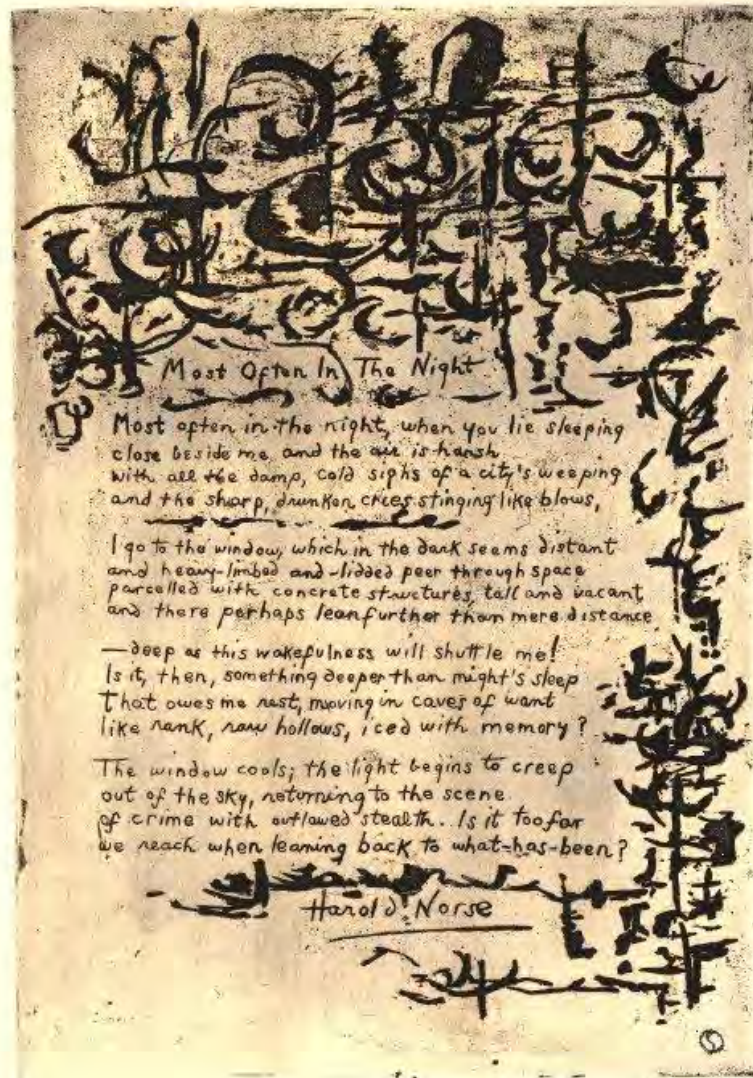 Most Often In The Night
Most often in the night, when you lie sleeping
close beside me and the air is harsh
with all the damp, cold sighs of a city's weeping
and the sharp, drunken cries stinging like blows,
I go to the window, which in the dark seems distant
and heavy-limbed and -lidded peer through space
parcelled with concrete structures, tall and vacant
and there perhaps lean further than mere distance
—deep as this wakefulness will shuttle me!
Is it, then, something deeper than might's sleep
That owes me rest, moving in caves of want
like rank, raw hollows, iced with memory?
The window cools; the light begins to creep
out of the sky, returning to the scene
of crime with outlawed stealth. Is it too far
we reach when leaning back to what-has-been?
Harold Norse